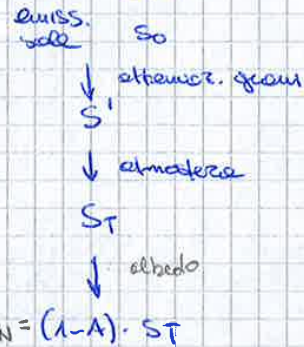 emiss.
sole S₀
↓ attenuaz. geom
S'
↓ atmosfera
S_T
↓ albedo
N = (1-A) · S_T